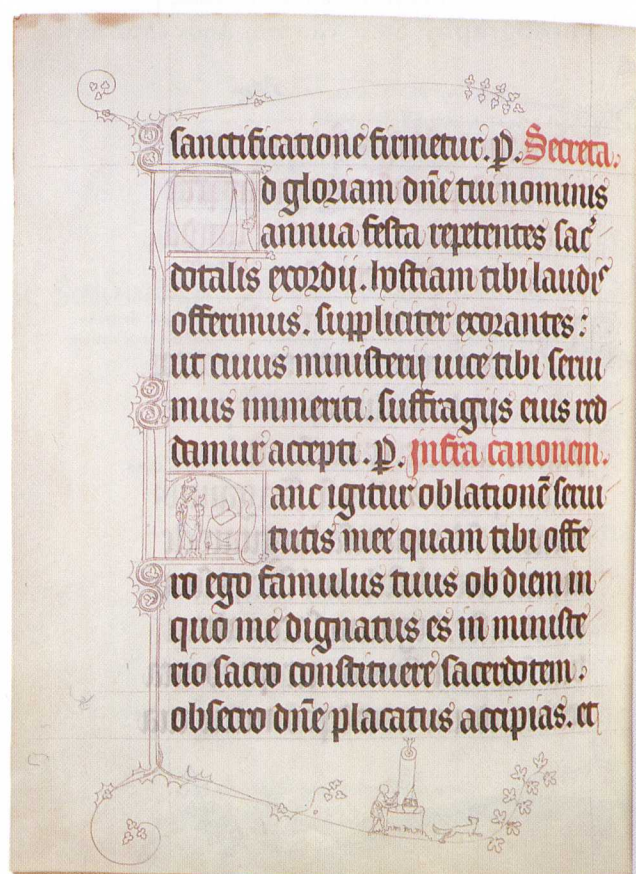 sanctificatione firmetur. P. Secreta.
d gloriam dn̄e tui nominis
annua festa repetentes sac̉
dotalis exordij. hostiam tibi laudis
offerimus. suppliciter exorantes:
ut cuius ministerij uice tibi serui
mus immeriti. suffragijs eius red
damur accepti. P. infra canonem.
anc igitur oblationē serui
tutis mee quam tibi offe
ro ego famulus tuus ob diem in
quo me dignatus es in ministe
rio sacro constituere sacerdotem.
obsecro dn̄e placatus accipias. et